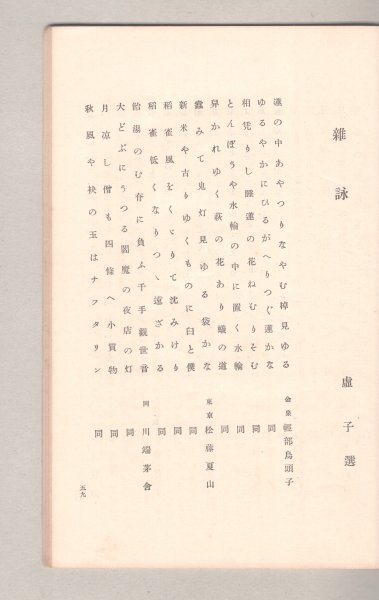 雜詠
虛子選
蓮の中あやつりなやむ棹見ゆる 輕部烏頭子
ゆるやかにひるがへりつぐ蓮かな 同
相凭りし睡蓮の花ねむりそむ 同
とんぼうや水輪の中に置く水輪 同
舁かれゆく萩の花あり蟻の道 同
みて鬼灯見ゆる袋かな 東京 松藤夏山
新米や古りゆくものに臼と僕 同
稻雀風をくゞりて沈みけり 同
稻雀低くなりつゝ遠ざかる 同
飴湯のむ背に負ふ千手觀世音 同 川端茅舍
大どぶにうつる閻魔の夜店の灯 同
月凉し僧も四條へ小買物 同
秋風や袂の玉はナフタリン 同
五九